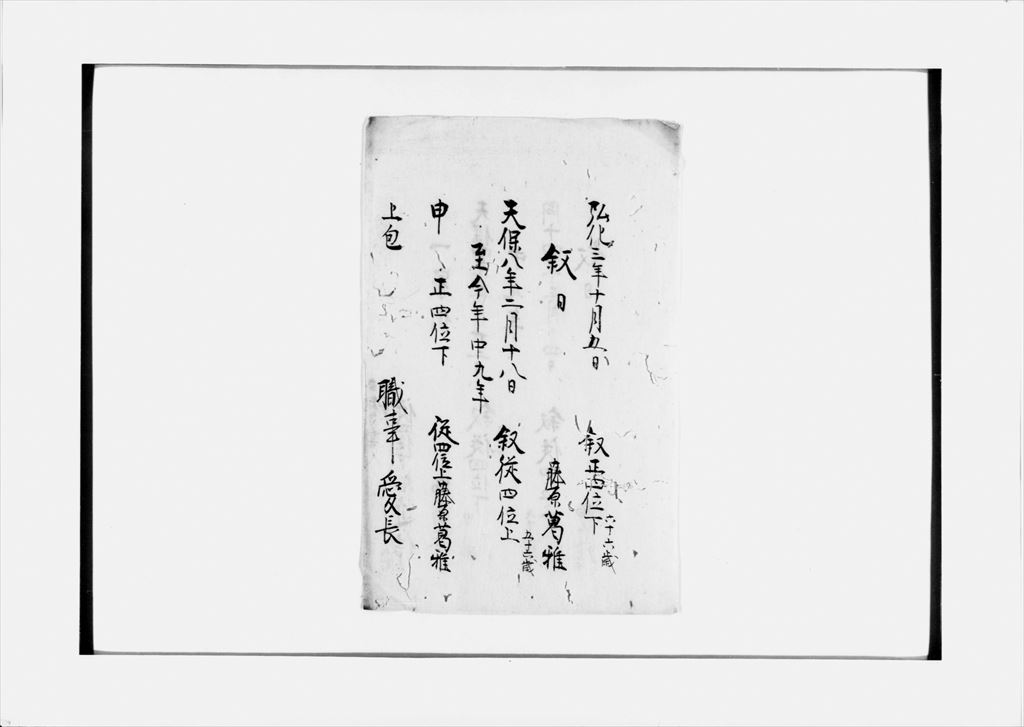 弘化三年十月五日 叙正四位下 六十六歳
叙日 藤原葛雅
天保八年二月十八日 叙従四位上 五十六歳
至今年中九年
申 正四位下 従四位上藤原葛雅
上包 職事愛長